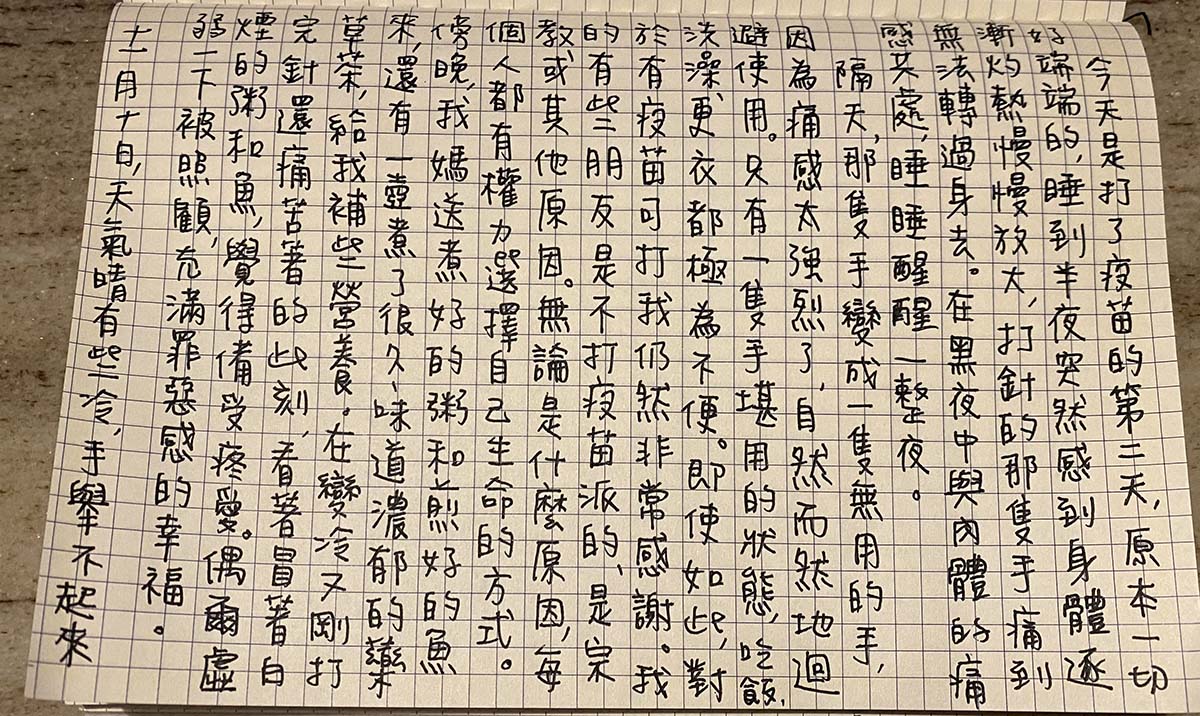 今天是打了疫苗的第二天，原本一切
好端端的，睡到半夜突然感到身體逐
漸灼熱慢慢放大，打針的那隻手痛到
無法轉過身去。在黑夜中與肉體的痛
感共處，睡睡醒醒一整夜。
隔天，那隻手變成一隻無用的手，
因為痛感太強烈了，自然而然地迴
避使用。只有一隻手堪用的狀態，吃飯、
洗澡、更衣都極為不便。即使如此，對
於有疫苗可打我仍然非常感謝。我
的有些朋友是不打疫苗派的，是宗
教或其他原因。無論是什麼原因，每
個人都有權力選擇自己生命的方式。
傍晚，我媽送煮好的粥和煎好的魚
來，還有一壺煮了很久、味道濃郁的藥
草茶，給我補些營養。在變冷又剛打
完針還痛苦著的此刻，看著冒著白
煙的粥和魚，覺得備受疼愛。偶爾虛
弱一下被照顧，充滿罪惡感的幸福。
十一月十日，天氣晴有些冷，手舉不起來